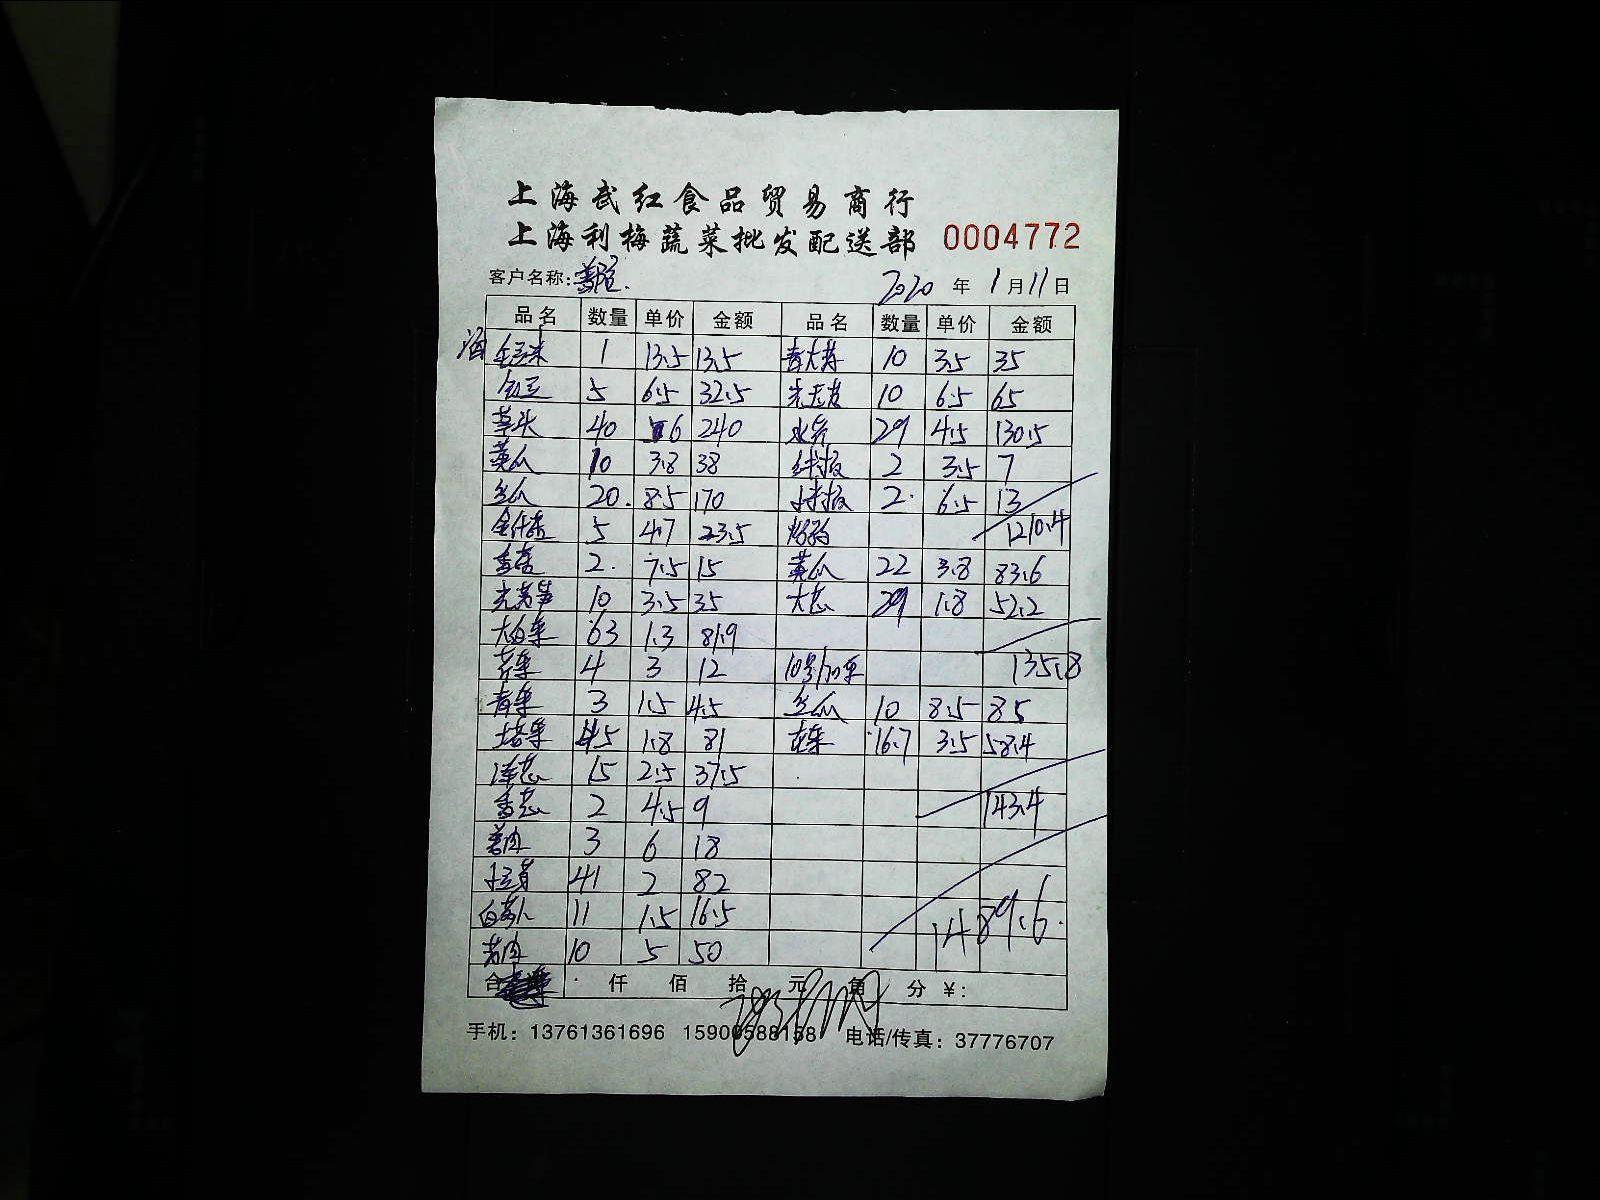 上海武红食品贸易商行
上海利梅蔬菜批发配送部 0004772
客户名称: 2020 年 1 月 11 日
品名 数量 单价 金额 品名 数量 单价 金额
1 13.5 13.5 10 3.5 35
5 6.5 32.5 10 6.5 65
草头 40 6 240 水笋 29 4.5 130.5
黄瓜 10 3.8 38 2 3.5 7
丝瓜 20. 8.5 170 2. 6.5 13
5 4.7 23.5 1210.4
2. 7.5 15 黄瓜 22 3.8 83.6
光莴笋 10 3.5 35 大芯 29 1.8 52.2
大白菜 63 1.3 81.9
芹菜 4 3 12 10号加菜 135.8
青菜 3 1.5 4.5 丝瓜 10 8.5 85
塔菜 45 1.8 81 花菜 16.7 3.5 58.4
15 2.5 37.5
2 4.5 9 143.4
姜肉 3 6 18
土豆 41 2 82
白萝卜 11 1.5 16.5 1489.6
10 5 50
合 仟 佰 拾 元 角 分 ¥:
手机: 13761361696 15900588158 电话/传真: 37776707